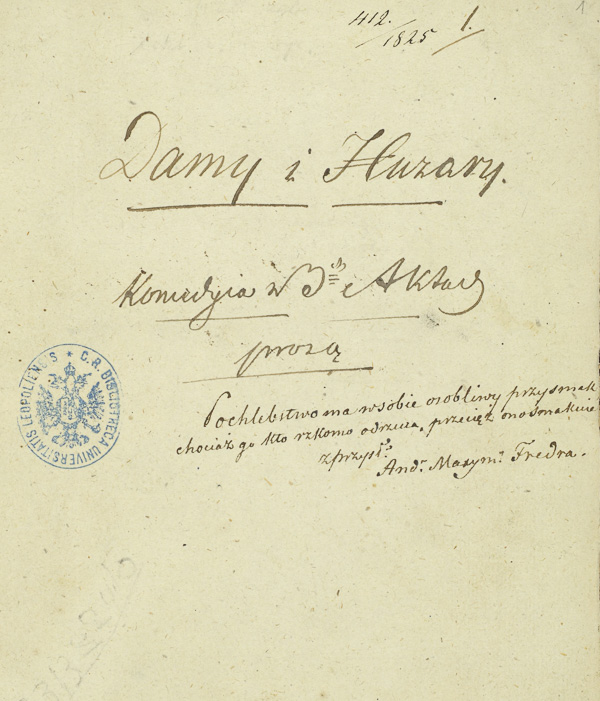 412./1825 1.
1
Damy i Huzary.
Komedyia w 3ch Aktach
prozą
Pochlebstwo ma w sobie osobliwy przysmak
chociaż go kto rzkomo odrzuca, przecięż ono smakuie
z przysł:
And: Maxym: Fredra.
C. R. BIBLIOTHECA UNIVERSITATIS LEOPOLIENSIS